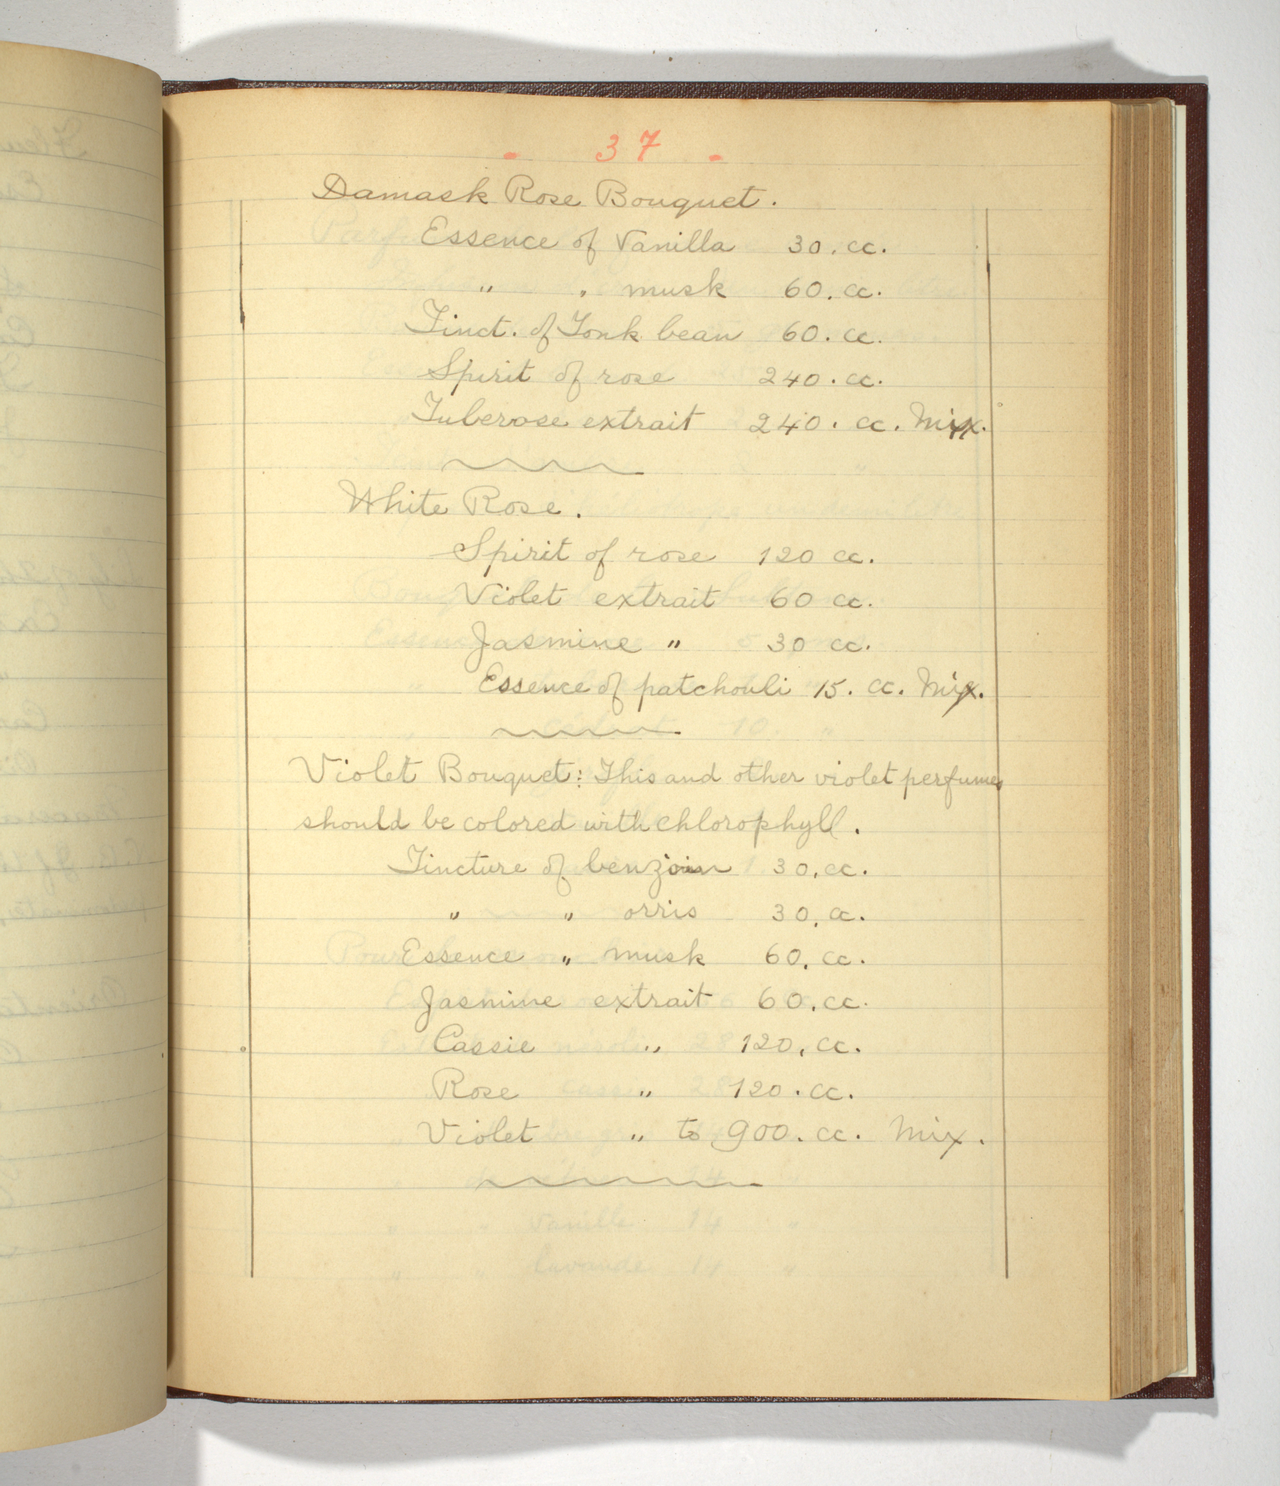 - 37 -
Damask Rose Bouquet.
Essence of Vanilla 30. cc.
" " musk 60. cc.
Tinct. of Tonk bean 60. cc.
Spirit of rose 240. cc.
Tuberose extrait 240. cc. Mix.
White Rose.
Spirit of rose 120 cc.
Violet extrait 60 cc.
Jasmine " 30 cc.
Essence of patchouli 15. cc. Mix.
Violet Bouquet: This and other violet perfumes
should be colored with chlorophyll.
Tincture of benzoin 30. cc.
" " orris 30. cc.
Essence " musk 60. cc.
Jasmine extrait 60. cc.
Cassie " 120. cc.
Rose " 120. cc.
Violet " to 900. cc. Mix.